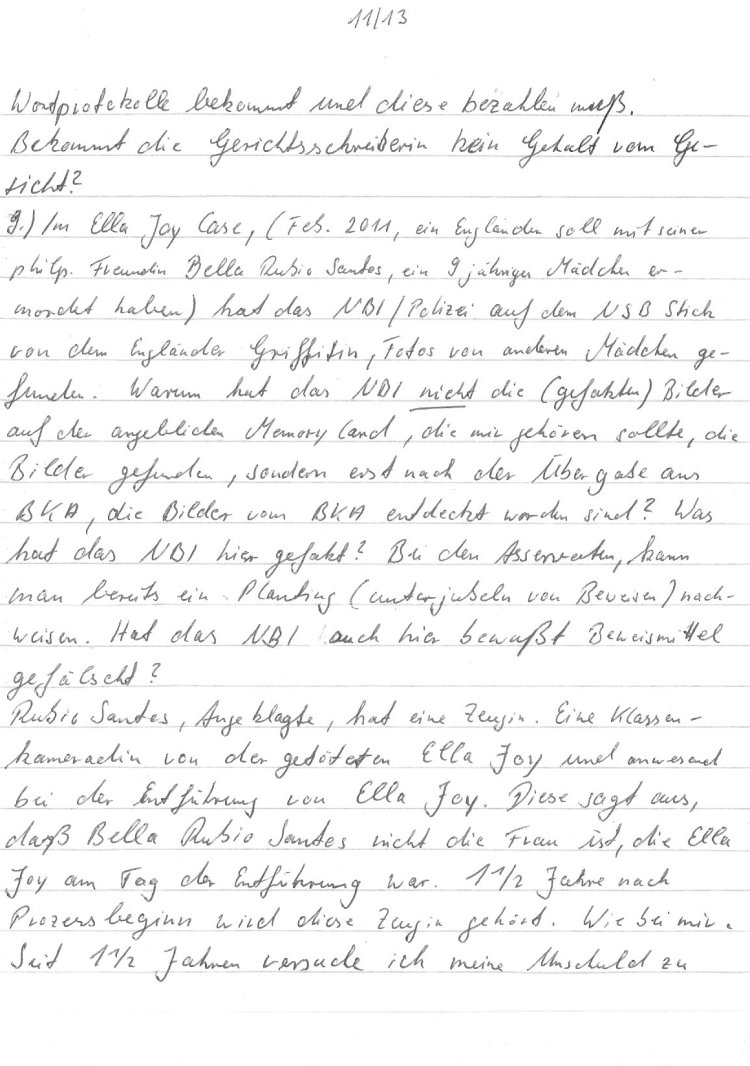 11/13
Wortprotokolle bekommt und diese bezahlen muß.
Bekommt die Gerichtsschreiberin kein Gehalt vom Ge-
richt?
9.) Im Ella Joy Case, (Feb. 2011, ein Engländer soll mit seiner
philp. Freundin Bella Rubio Santos, ein 9 jähriges Mädchen er-
mordet haben) hat das NBI/Polizei auf dem USB Stick
von dem Engländer Griffitin, Fotos von anderen Mädchen ge-
funden. Warum hat das NBI nicht die (gefakten) Bilder
auf der angeblichen Memory Card, die mir gehören sollte, die
Bilder gefunden, sondern erst nach der Übergabe ans
BKA, die Bilder vom BKA entdeckt worden sind? Was
hat das NBI hier gefakt? Bei den Asservaten, kann
man bereits ein Planting (unterjubeln von Beweisen) nach-
weisen. Hat das NBI auch hier bewußt Beweismittel
gefälscht?
Rubio Santos, Angeklagte, hat eine Zeugin. Eine Klassen-
kameradin von der getöteten Ella Joy und anwesend
bei der Entführung von Ella Joy. Diese sagt aus,
daß Bella Rubio Santos nicht die Frau ist, die Ella
Joy am Tag der Entführung war. 1 1/2 Jahre nach
Prozessbeginn wird diese Zeugin gehört. Wie bei mir.
Seit 1 1/2 Jahren versuche ich meine Unschuld zu